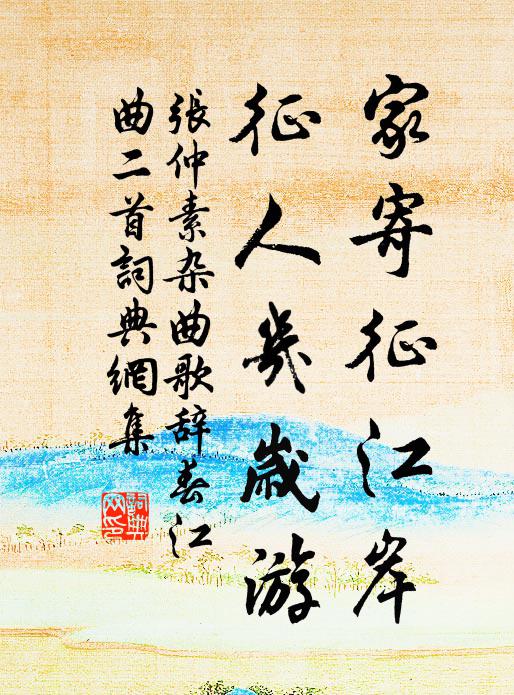 家寄征江岸
征人幾歲游
張仲素杂曲歌辞春江
曲二首詞典網集
詞典网印